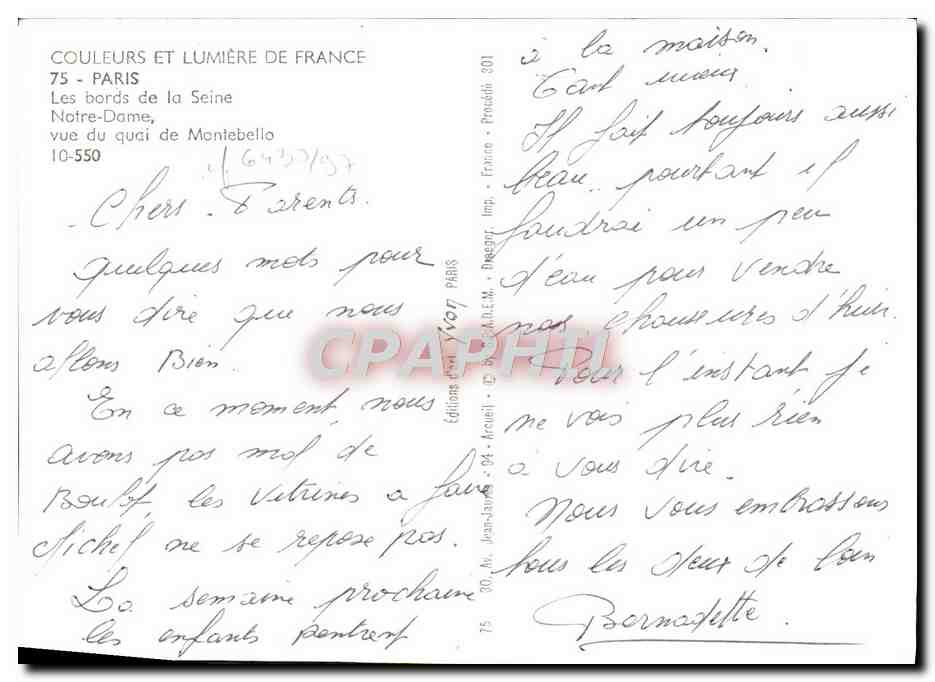 COULEURS ET LUMIÈRE DE FRANCE
75 - PARIS
Les bords de la Seine
Notre-Dame,
vue du quai de Montebello
10-550
6437/97
Chers Parents.
quelques mots pour
vous dire que nous
allons Bien.
En ce moment, nous
avons pas mal de
Boulot, les vitrines a faire
Michel ne se repose pas.
La semaine prochaine
les enfants rentrent
à la maison.
Tant mieux
Il fait toujours aussi
beau.. pourtant il
faudrai un peu
d'eau pour vendre
nos chaussures d'hiver.
Pour l'instant je
ne vois plus rien
à vous dire.
Nous vous embrassons
tous les deux de loin
Bernadette.
Editions d'art Yvon PARIS
30, Av. Jean-Jaurès - 94 - Arcueil - © by S.P.A.D.E.M. - Draeger, Imp. - France - Procédé 301
75
CPAPHIL